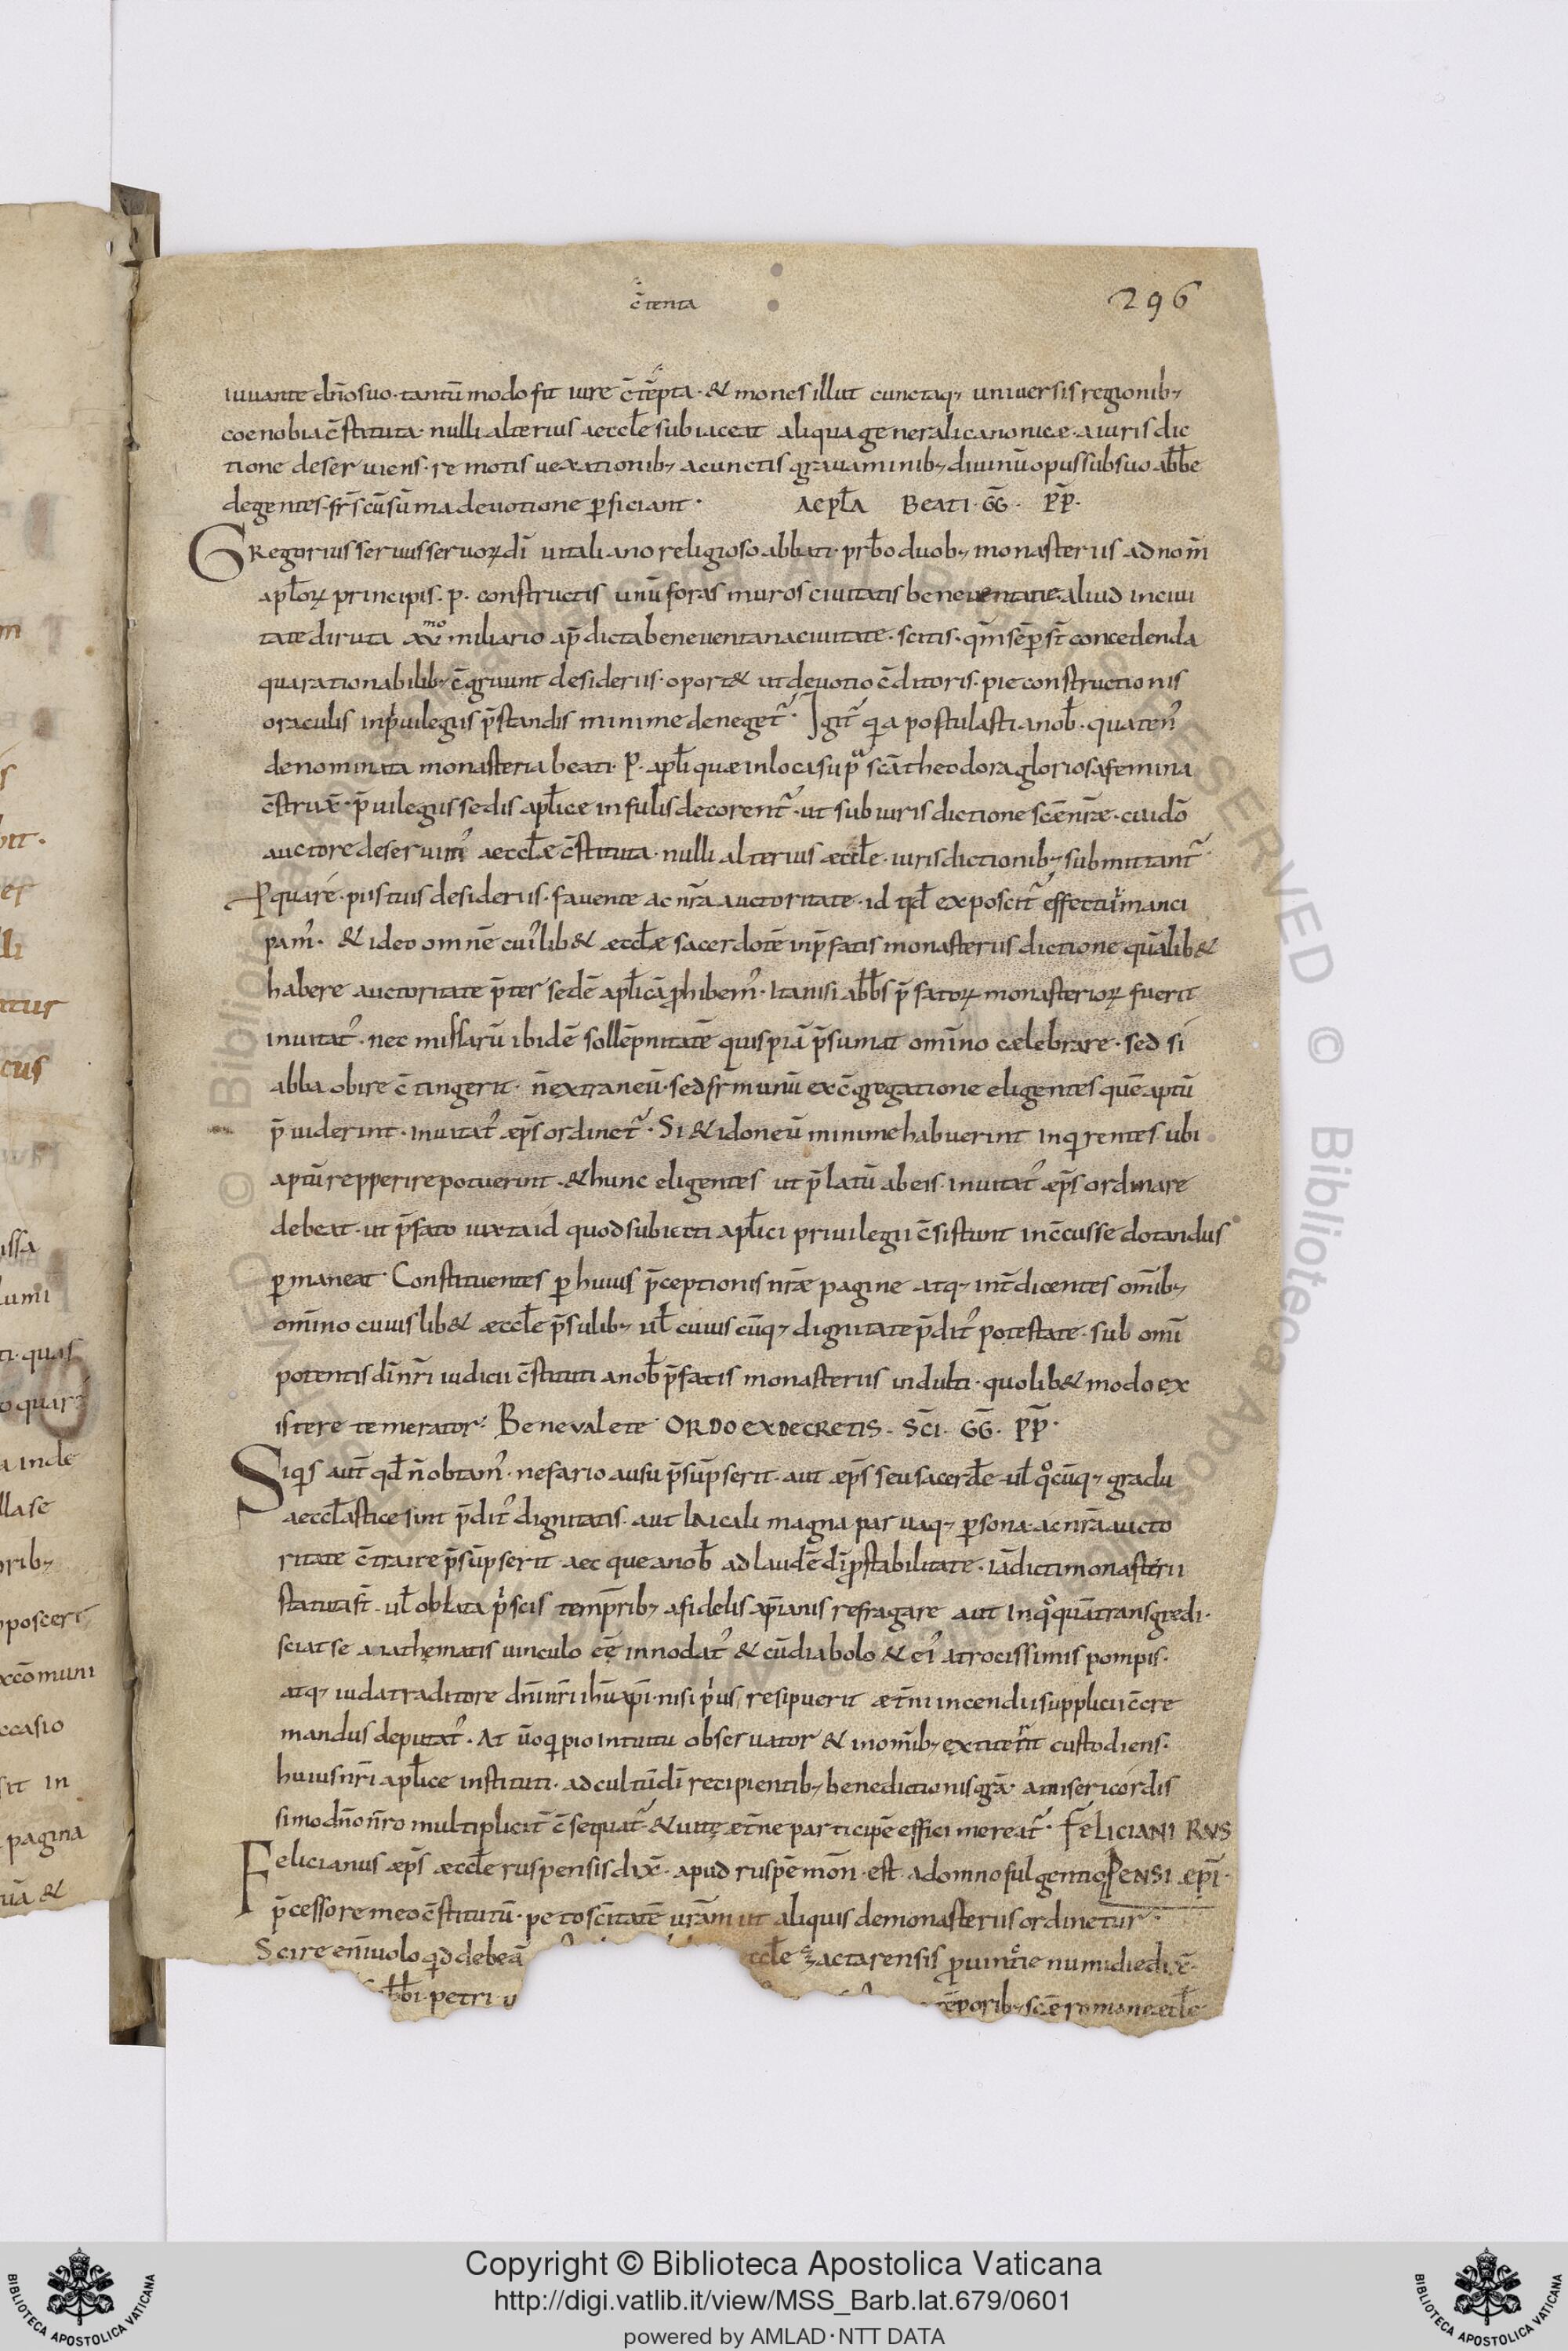 c̄tenta
296
iuuante dn̄o suo · tantū modo fit iure c̄tēpta · & mones illut cunctaq; uniuersis regionib;
coenobia c̄stituta · nulli alterius aeccłe subiaceat aliqua generali canonice · a iuris dic
tione deseruiens · remotis uexationib; a cunctis grauaminib; diuinū opus sub suo abb̄e
degentes · fr̄s cū sūma deuotione p̄ficiant · ACPL̄A BEATI · GG · PP̄ ·
GRegorius seruus seruoꝝ dī uitaliano religioso abbati · prb̄o duob; monasteriis ad nom̄
apłoꝝ principis · p · constructis unū foras muros ciuitatis beneuentane · aliud in ciui
tate diruta xximo miliario ap̄ dicta beneuentana ciuitate · scitis · qm̄ sēp st̄ concedenda
qua rationabilib; c̄gruunt desideriis · oport& ut deuotio c̄ditoris · pie constructionis
oraculis in p̄uilegiis p̄standis minime deneget᷑ · Igit᷑ qia postulasti a nob̄ · quaten᷒
denominata monasteria beati · P · apłi quæ in loca sup̄ᵃ scā theodora gloriosa femina
c̄struxe · p̄uilegiis sedis apłice infulis decorent᷑ · ut sub iuris dictione scē nr̄æ · cui dō
auctore deseruim᷒ aeccłæ c̄stituta · nulli alterius æccłe · iuris dictionib; submittant᷑
Pquare · piis tuis desideriis · fauente ac nr̄a auctoritate · id qd̄ exposcit᷑ effectui manci
pam᷒ · & ideo omnē cui᷒lib& æccłæ sacerdotē in p̄fatis monasteriis dictione quālib&
habere auctoritate p̄ter sedē apłicā ꝓhibem᷒ · Ita nisi abb̄s p̄fatoꝝ monasterioꝝ fuerit
inuitat᷒ · nec missarū ibidē sollēpnitatē quispiā p̄sumat om̄ino cælebrare · sed si
abba obire c̄tingerit · n̄ extraneū · sed fr̄m unū ex c̄gregatione eligentes quē aptū
p̄uiderint · inuitat᷒ æp̄s ordinet᷑ · Si & idoneū minime habuerint inqirentes ubi
aptū repperire potuerint · & hunc eligentes ut p̄latū ab eis · inuitat᷒ æp̄s ordinare
debeat · ut p̄fato iuxta id quod subiecti apłici priuilegii c̄sistunt inc̄cusse dotandus
p̱maneat · Constituentes p̱ huius p̄ceptionis nr̄æ pagine atq; int̄dicentes om̄ib;
om̄ino cuiuslib& æccłe p̄sulib; uł cuiuscūq; dignitate p̄dit᷒ potestate · sub omī
potentis dī nr̄i iudicii c̄stituti a nob̄ p̄fatis monasteriis indulti · quolib& modo ex
istere temerator᷒ Bene ualete · ORDO EX DECRETIS · SCĪ · GG · PP̄ ·
Siqis aut̄ qd̄ n̄ obtam᷒ · nefario ausu p̄sūpserit · aut æp̄s seu sacerd̄e · uł qͦcūq; gradu
aeccłastice sint p̄dit᷒ dignitatis · aut laicali magna paruaq; p̱sona · ac nr̄a aucto
ritate c̄traire p̄sūpserit aec que a nob̄ ad laudē dī ꝓ stabilitate · iā dicti monasterii
statuta st̄ · uł oblata pⁱscis temp̄rib; a fidelis xp̄ianis refragare aut inqͦquā transgredi ·
sciat se anathematis uinculo eē innodat᷒ & cū diabolo & ei᷒ atrocissimis pompis ·
atq; iuda traditore dn̄i nr̄i ih̄u xp̄i · nisi pⁱus resipuerit æt̄ni incendii supplicii c̄cre
mandus deputat᷒ · At u̅o qi pio intuitu obseruator & in om̄ib; extiterit custodiens ·
huius nr̄i apłice instituti · ad cultū dī recipientib; benedictionis grā · a misericordis
simo dn̄o nr̄o multiplicit̄ c̄sequat᷑ & uitę æt̄ne participē effici mereat᷑ · FELICIANI RUS
Felicianus æp̄s æccłe ruspensis dix̄ · apud ruspē mōn · est · a domno fulgentio PENSI · æpī ·
p̄cessore meo c̄stitutū · peto sc̄itatē ur̄am ut aliquis de monasteriis ordinetur ·
Scire eni᷒ uolo qd debeā ccłe zactarensis ꝓuintie numidie dix̄ ·
bb̄i · petri u tēporib; scē romane æcłe